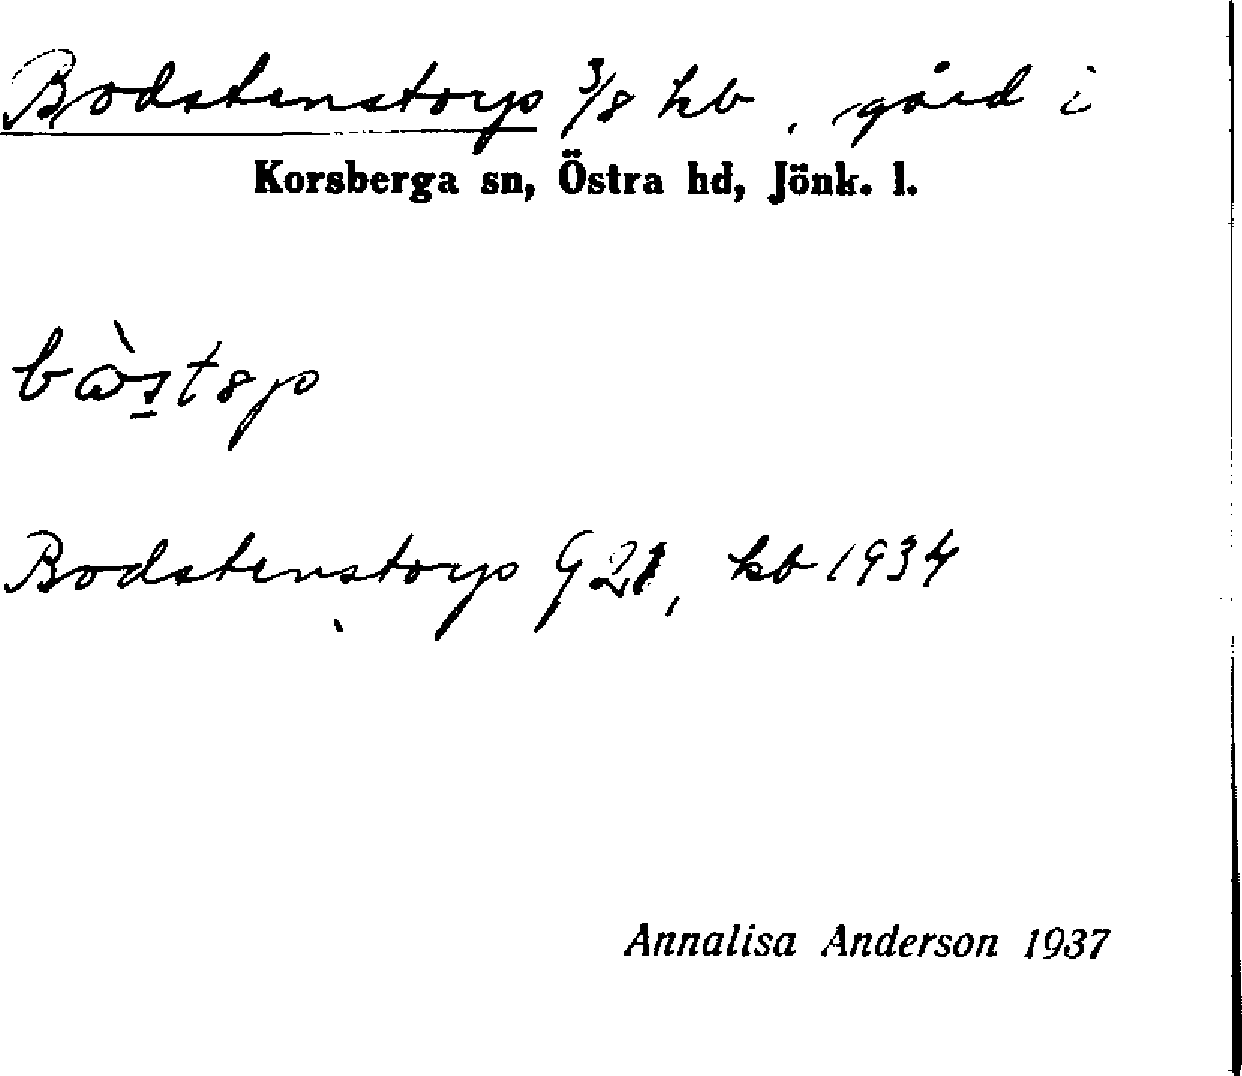 Bodstenstorp 3/8 hb, gård i
Korsberga sn, Östra hd, Jönk. l.
Bodstenstorp G 21, kb 1934
Annalisa Anderson 1937